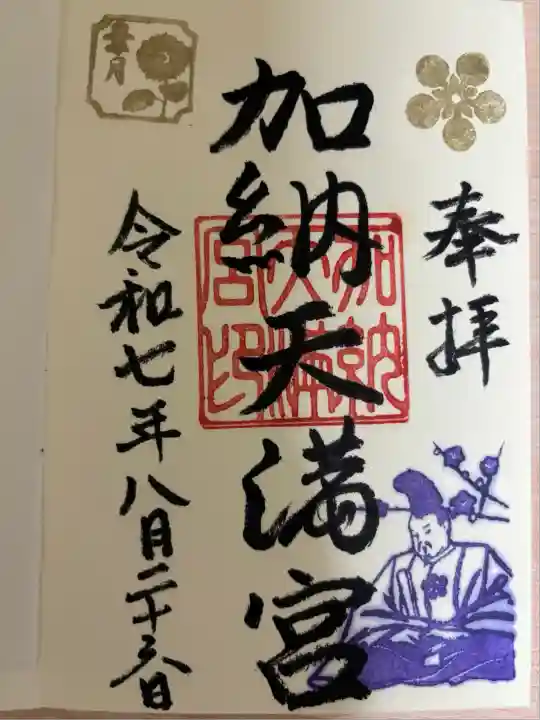 奉拝
加納天満宮
加納天満宮印
令和七年八月二十三日
葉月